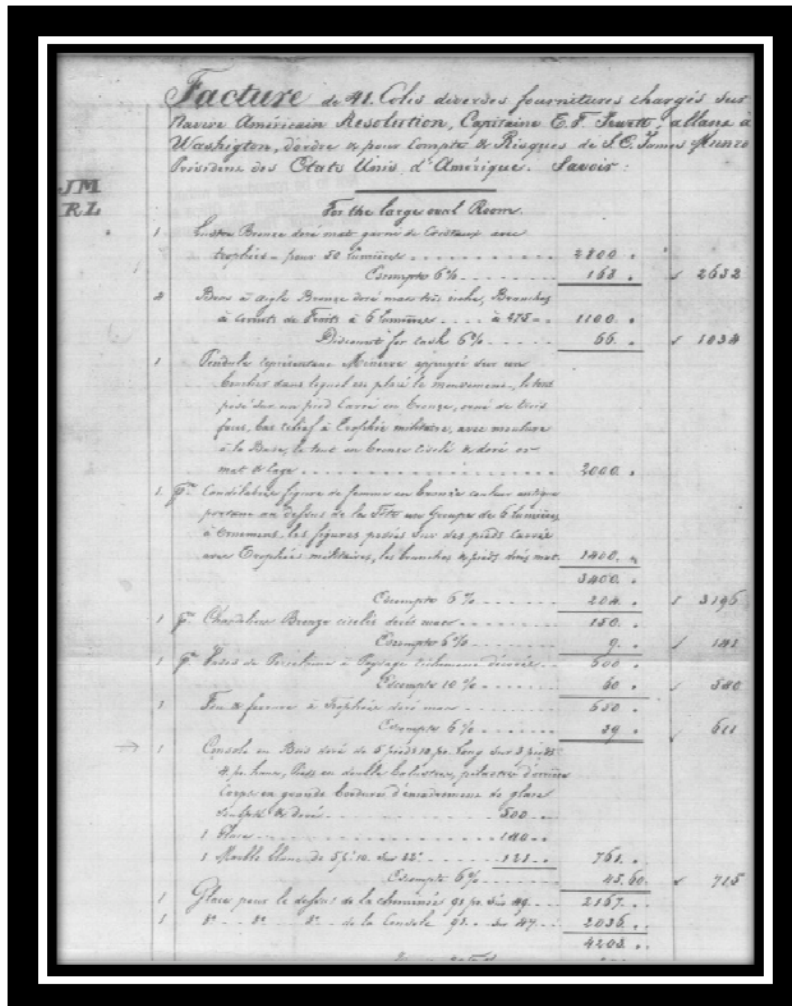 Facture de 41. Colis diverses fournitures chargés sur
Navire Américain Resolution, Capitaine E. F. allant à
Washington, d'ordre & pour Compte & Risques de S. E. James Munro
Président des Etats Unis d'Amérique. Savoir:
JM
RL
For the large oval Room.
1 Lustre Bronze doré mat garni de Cristaux avec
trophées - pour 50 lumières 2800.
Escompte 6% 168. 2632
4 Bras à aigle Bronze doré mat très riche, Branches
à de Fruits à 6 lumières à 275 = 1100.
Discount for cash 6% 66. 1034
1 Pendule représentant Minerve appuyée sur un
bouclier dans lequel est placé le mouvement, le tout
posé sur un pied Carré en bronze, orné de trois
faces, bas relief à Trophée militaire, avec moulure
à la Base, le tout en bronze ciselé & doré or
mat & Cage 2000.
1. p. Candélabres figure de femme en bronze couleur antique
portant au dessus de la Tête un Groupe de 6 lumières
à Ornemens, les figures posées sur des pieds Carrés
avec Trophées militaires, les branches & pieds dorés mat. 1400.
3400.
Escompte 6% 204. 3196
1 p. Chandeliers Bronze ciselés dorés mat 150.
Escompte 6% 9. 141
1 p. Vases de Porcelaine à Paysage richement décorés 600.
Escompte 10% 60. 540
1 Feu & ferrure à Trophées doré mat 650.
Escompte 6% 39. 611
1 Console en Bois doré de 5 pieds 10 po. long sur 3 pieds
4 po. haut, Pieds en double balustres, pilastres derrière
Corps en grande bordure d'encadrement de glace
sculpté & doré 500
1 Glace 140
1 Marbre blanc de 5 pi. 10. sur 22. 121 761.
Escompte 6% 45,60. 715
1 Glace pour le dessus de la cheminée 91 po. sur 49. 2167.
1 do. do. do. de la Console 91. sur 47. 2036.
4203.